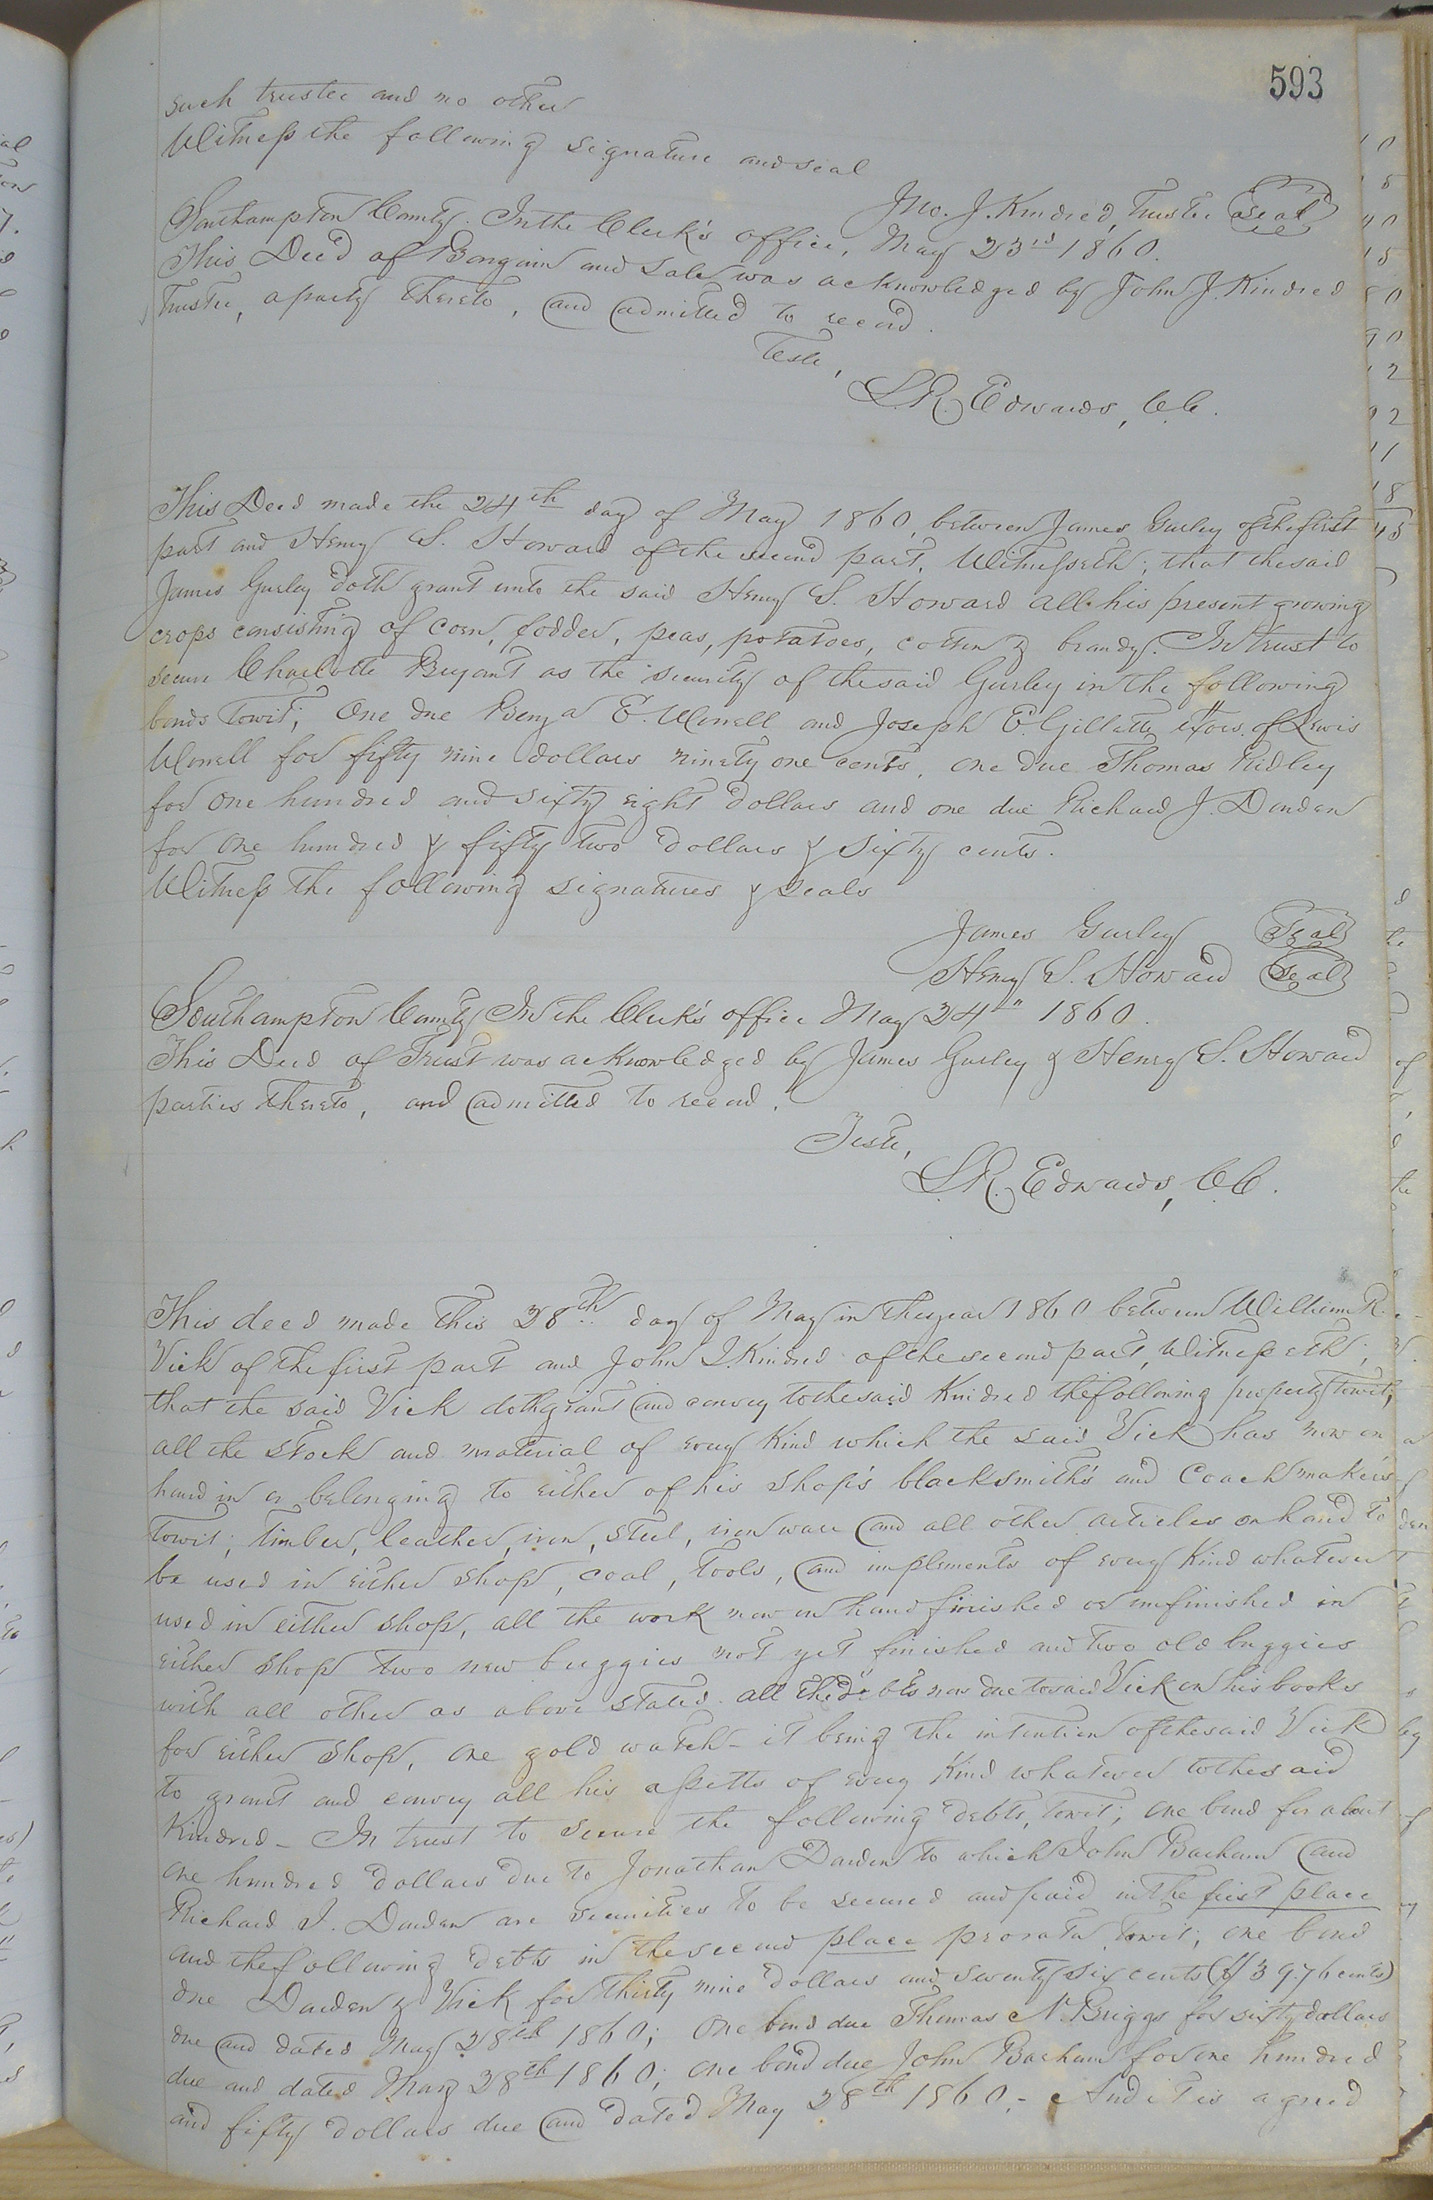 593
such trustee and no other
Witness the following signature and seal
Jno. J. Kindred, Trustee Seal
Southampton County. In the Clerk's office, May 23rd 1860.
This Deed of Bargain and Sale was acknowledged by John J. Kindred
Trustee, a party thereto, and admitted to record.
Teste,
L.R. Edwards, C.C.
This Deed made the 24th day of May 1860, between James Gurley of the first
part and Henry S. Howard of the second part, Witnesseth; that the said
James Gurley doth grant unto the said Henry S. Howard all his present growing
crops consisting of corn, fodder, peas, potatoes, cotton & brandy. In trust to
secure Charlotte Bryant as the security of the said Gurley in the following
bonds towit; One due Benja E. Worrell and Joseph E. Gillette Exors. of Lewis
Worrell for fifty nine dollars ninety one cents, one due Thomas Ridley
for one hundred and sixty eight dollars and one due Richard J. Darden
for one hundred & fifty two dollars & sixty cents.
Witness the following signatures & seals
James Gurley Seal
Henry S. Howard Seal
Southampton County In the Clerk's office May 24th 1860.
This Deed of Trust was acknowledged by James Gurley & Henry S. Howard
parties thereto, and admitted to record.
Teste,
L.R. Edwards, C.C.
This deed made this 28th day of May in the year 1860 between William R.
Vick of the first part and John J. Kindred of the second part, Witnesseth;
that the said Vick doth grant and convey to the said Kindred the following property towit;
all the stock and material of every kind which the said Vick has now on
hand in or belonging to either of his shop's blacksmith's and Coachmaker's
towit; timber, leather, iron, steel, iron ware and all other articles on hand to
be used in either shop, coal, tools, and implements of every kind whatever
used in either shop, all the work now on hand finished or unfinished in
either shop two new buggies not yet finished and two old buggies
with all other as above stated. all the debts now due to said Vick on his books
for either shop, one gold watch - it being the intention of the said Vick
to grant and convey all his assetts of every kind whatever to the said
Kindred - In trust to secure the following debts, towit; one bond for about
one hundred dollars due to Jonathan Darden to which John Barham and
Richard J. Darden are securities to be secured and paid in the first place
and the following debts in the second place prorata, towit; one bond
due Darden & Vick for thirty nine dollars and seventy six cents ($39.76 cents)
due and dated May 28th 1860; One bond due Thomas N. Briggs for sixty dollars
due and dated May 28th 1860; one bond due John Barham for one hundred
and fifty dollars due and dated May 28th 1860. - And it is agreed